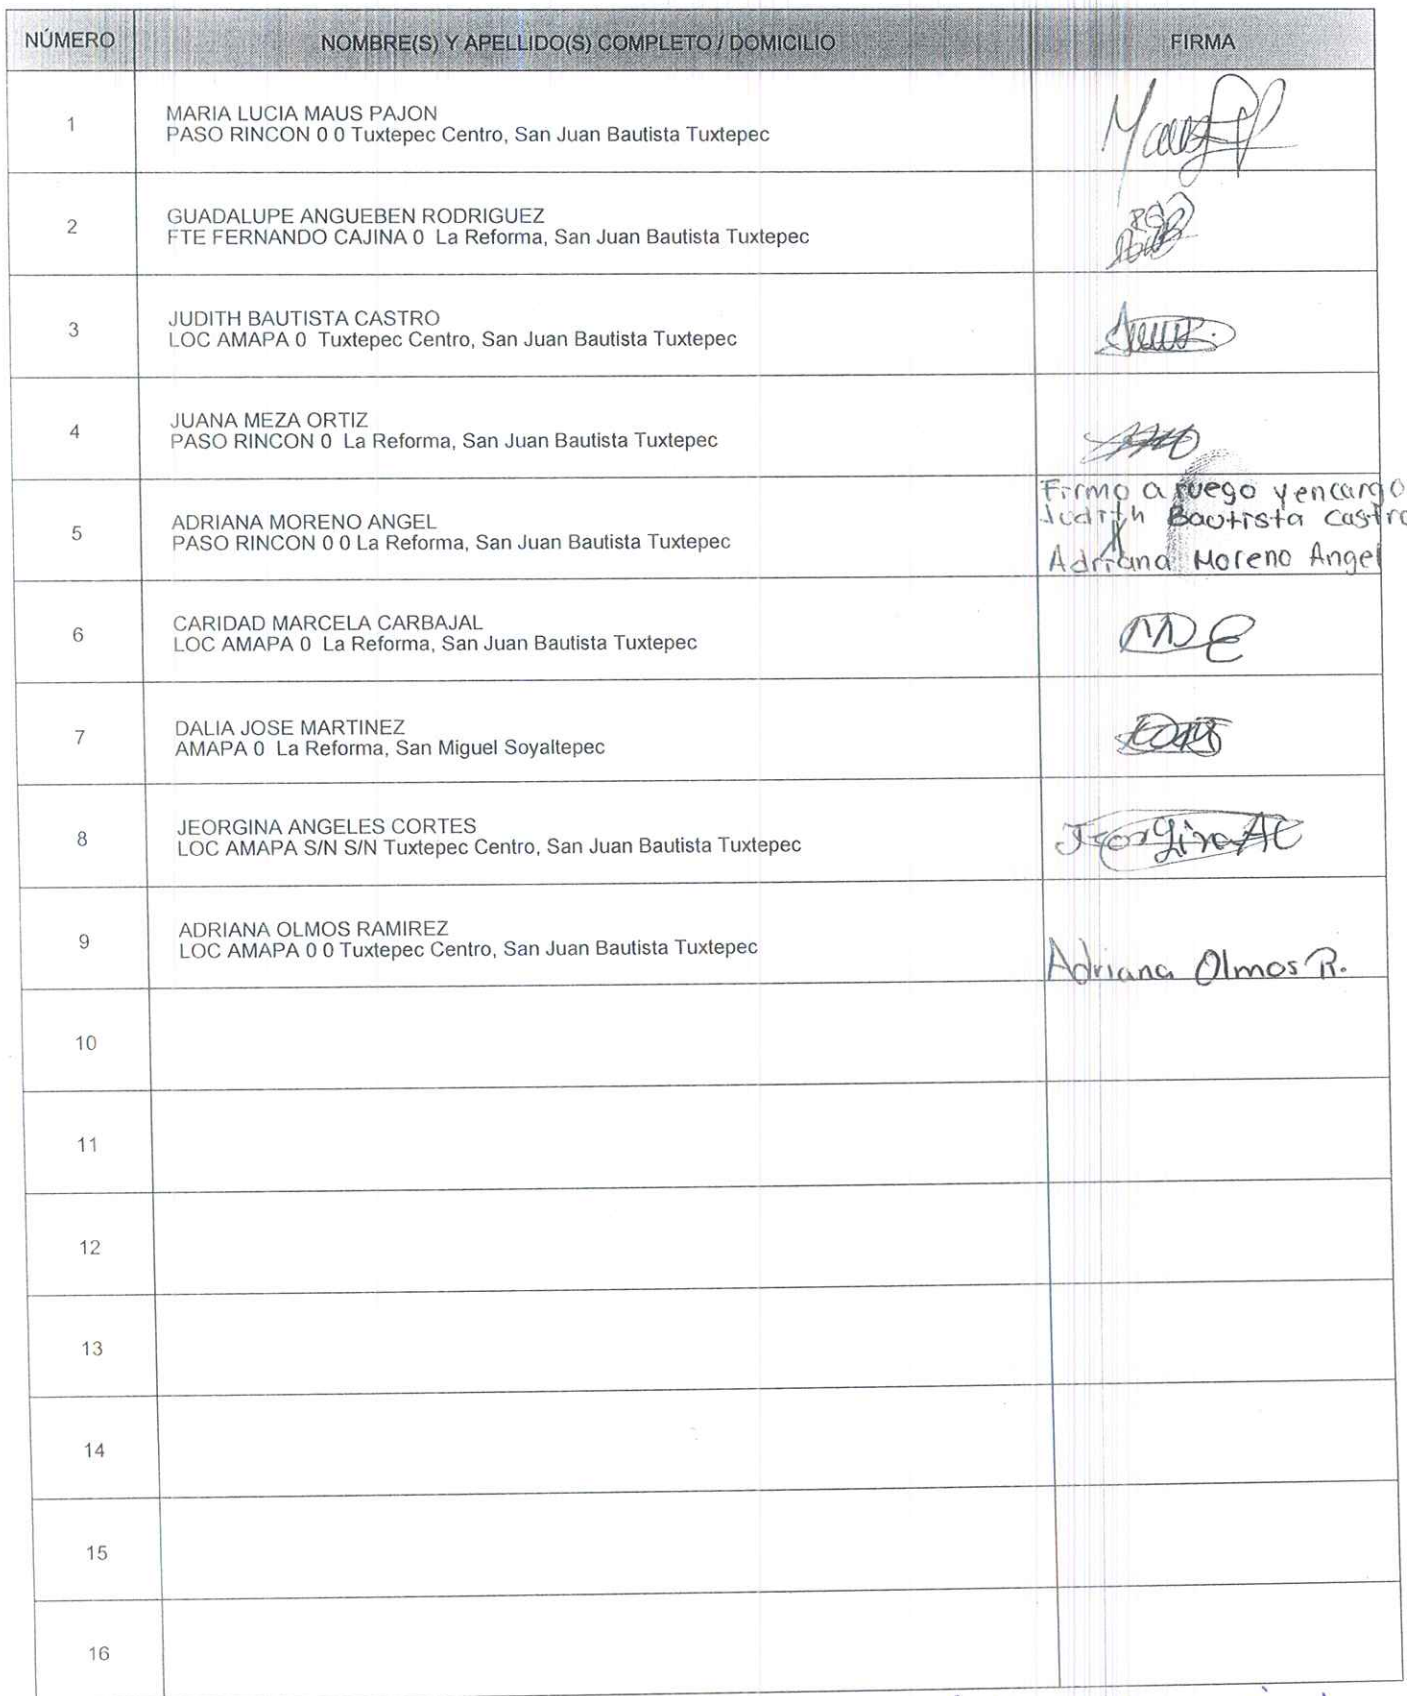 NÚMERO NOMBRE(S) Y APELLIDO(S) COMPLETO / DOMICILIO FIRMA
1 MARIA LUCIA MAUS PAJON
PASO RINCON 0 0 Tuxtepec Centro, San Juan Bautista Tuxtepec
2 GUADALUPE ANGUEBEN RODRIGUEZ
FTE FERNANDO CAJINA 0 La Reforma, San Juan Bautista Tuxtepec
3 JUDITH BAUTISTA CASTRO
LOC AMAPA 0 Tuxtepec Centro, San Juan Bautista Tuxtepec
4 JUANA MEZA ORTIZ
PASO RINCON 0 La Reforma, San Juan Bautista Tuxtepec
5 ADRIANA MORENO ANGEL
PASO RINCON 0 0 La Reforma, San Juan Bautista Tuxtepec
Firmo a ruego y encargo
Judith Bautista Castro
Adriana Moreno Angel
6 CARIDAD MARCELA CARBAJAL
LOC AMAPA 0 La Reforma, San Juan Bautista Tuxtepec
7 DALIA JOSE MARTINEZ
AMAPA 0 La Reforma, San Miguel Soyaltepec
8 JEORGINA ANGELES CORTES
LOC AMAPA S/N S/N Tuxtepec Centro, San Juan Bautista Tuxtepec
Jeorgina AC
9 ADRIANA OLMOS RAMIREZ
LOC AMAPA 0 0 Tuxtepec Centro, San Juan Bautista Tuxtepec
Adriana Olmos R.
10
11
12
13
14
15
16